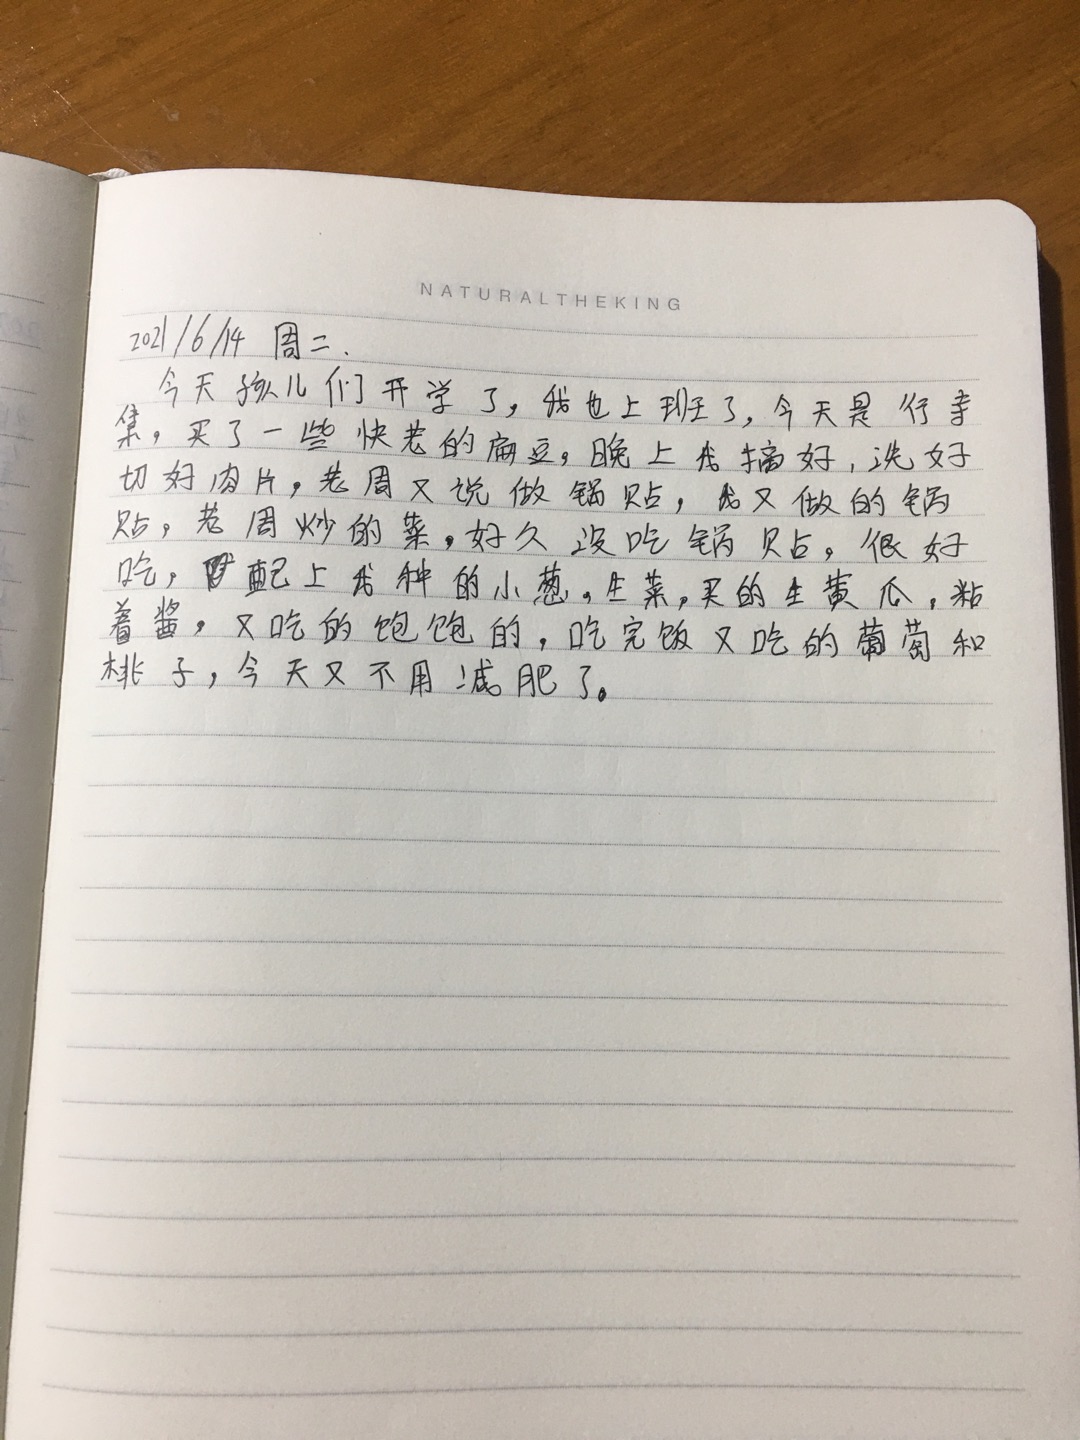 NATURALTHEKING
2021/6/14 周二.
今天孩儿们开学了,我也上班了,今天是行寺
集,买了一些快老的扁豆,晚上我摘好,洗好
切好肉片,老周又说做锅贴,我又做的锅
贴,老周炒的菜,好久没吃锅贴,很好
吃,配上我种的小葱,生菜,买的生黄瓜,粘
着酱,又吃的饱饱的,吃完饭又吃的葡萄和
桃子,今天又不用减肥了。